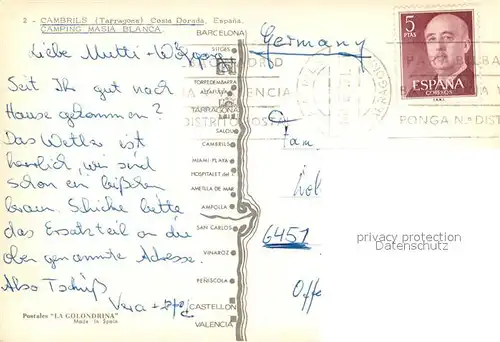 2 - CAMBRILS (Tarragona) Costa Dorada, España.
CAMPING MASIA BLANCA.
Liebe Mutti +
Seit Ihr gut nach
Hause gekommen?
Das Wetter ist
herrlich, wir sind
schon ein bißchen
braun. Schicke bitte
das Ersatzteil an die
oben genannte Adresse.
Also Tschüß
Vera +
Postales "LA GOLONDRINA"
Made in Spain
BARCELONA
SITGES
TORREDEMBARRA
ALTAFULLA
TARRAGONA
SALOU
CAMBRILS
MIAMI PLAYA
HOSPITALET del I.
AMETLLA DE MAR
AMPOLLA
SAN CARLOS
VINAROZ
PEÑISCOLA
CASTELLON
VALENCIA
Germany
MADRID
VALENCIA
DISTRITO POSTAL
PONGA N.º DIST
5
PTAS
ESPAÑA
CORREOS
Fam.
6451
privacy protection
Datenschutz